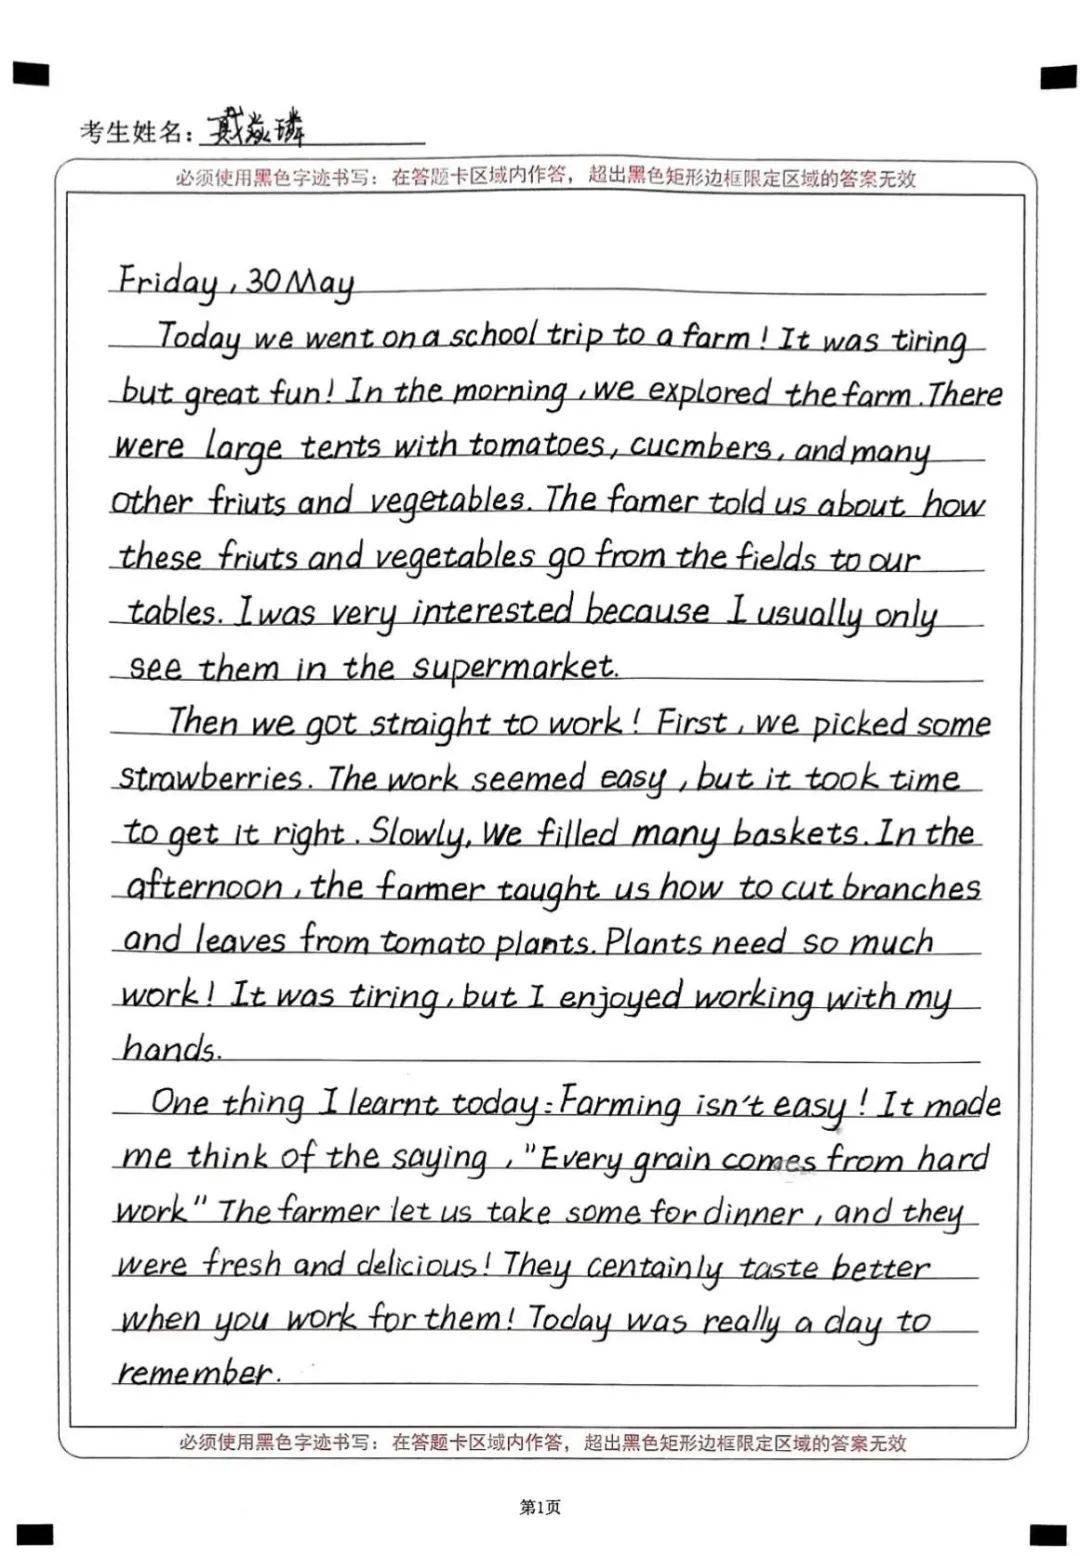 考生姓名：戴焱璘
必须使用黑色字迹书写：在答题卡区域内作答，超出黑色矩形边框限定区域的答案无效
Friday, 30 May
Today we went on a school trip to a farm! It was tiring
but great fun! In the morning, we explored the farm. There
were large tents with tomatoes, cucmbers, and many
other friuts and vegetables. The famer told us about how
these friuts and vegetables go from the fields to our
tables. I was very interested because I usually only
see them in the supermarket.
Then we got straight to work! First, we picked some
strawberries. The work seemed easy, but it took time
to get it right. Slowly, We filled many baskets. In the
afternoon, the farmer taught us how to cut branches
and leaves from tomato plants. Plants need so much
work! It was tiring, but I enjoyed working with my
hands.
One thing I learnt today: Farming isn't easy! It made
me think of the saying, "Every grain comes from hard
work" The farmer let us take some for dinner, and they
were fresh and delicious! They centainly taste better
when you work for them! Today was really a day to
remember.
必须使用黑色字迹书写：在答题卡区域内作答，超出黑色矩形边框限定区域的答案无效
第1页